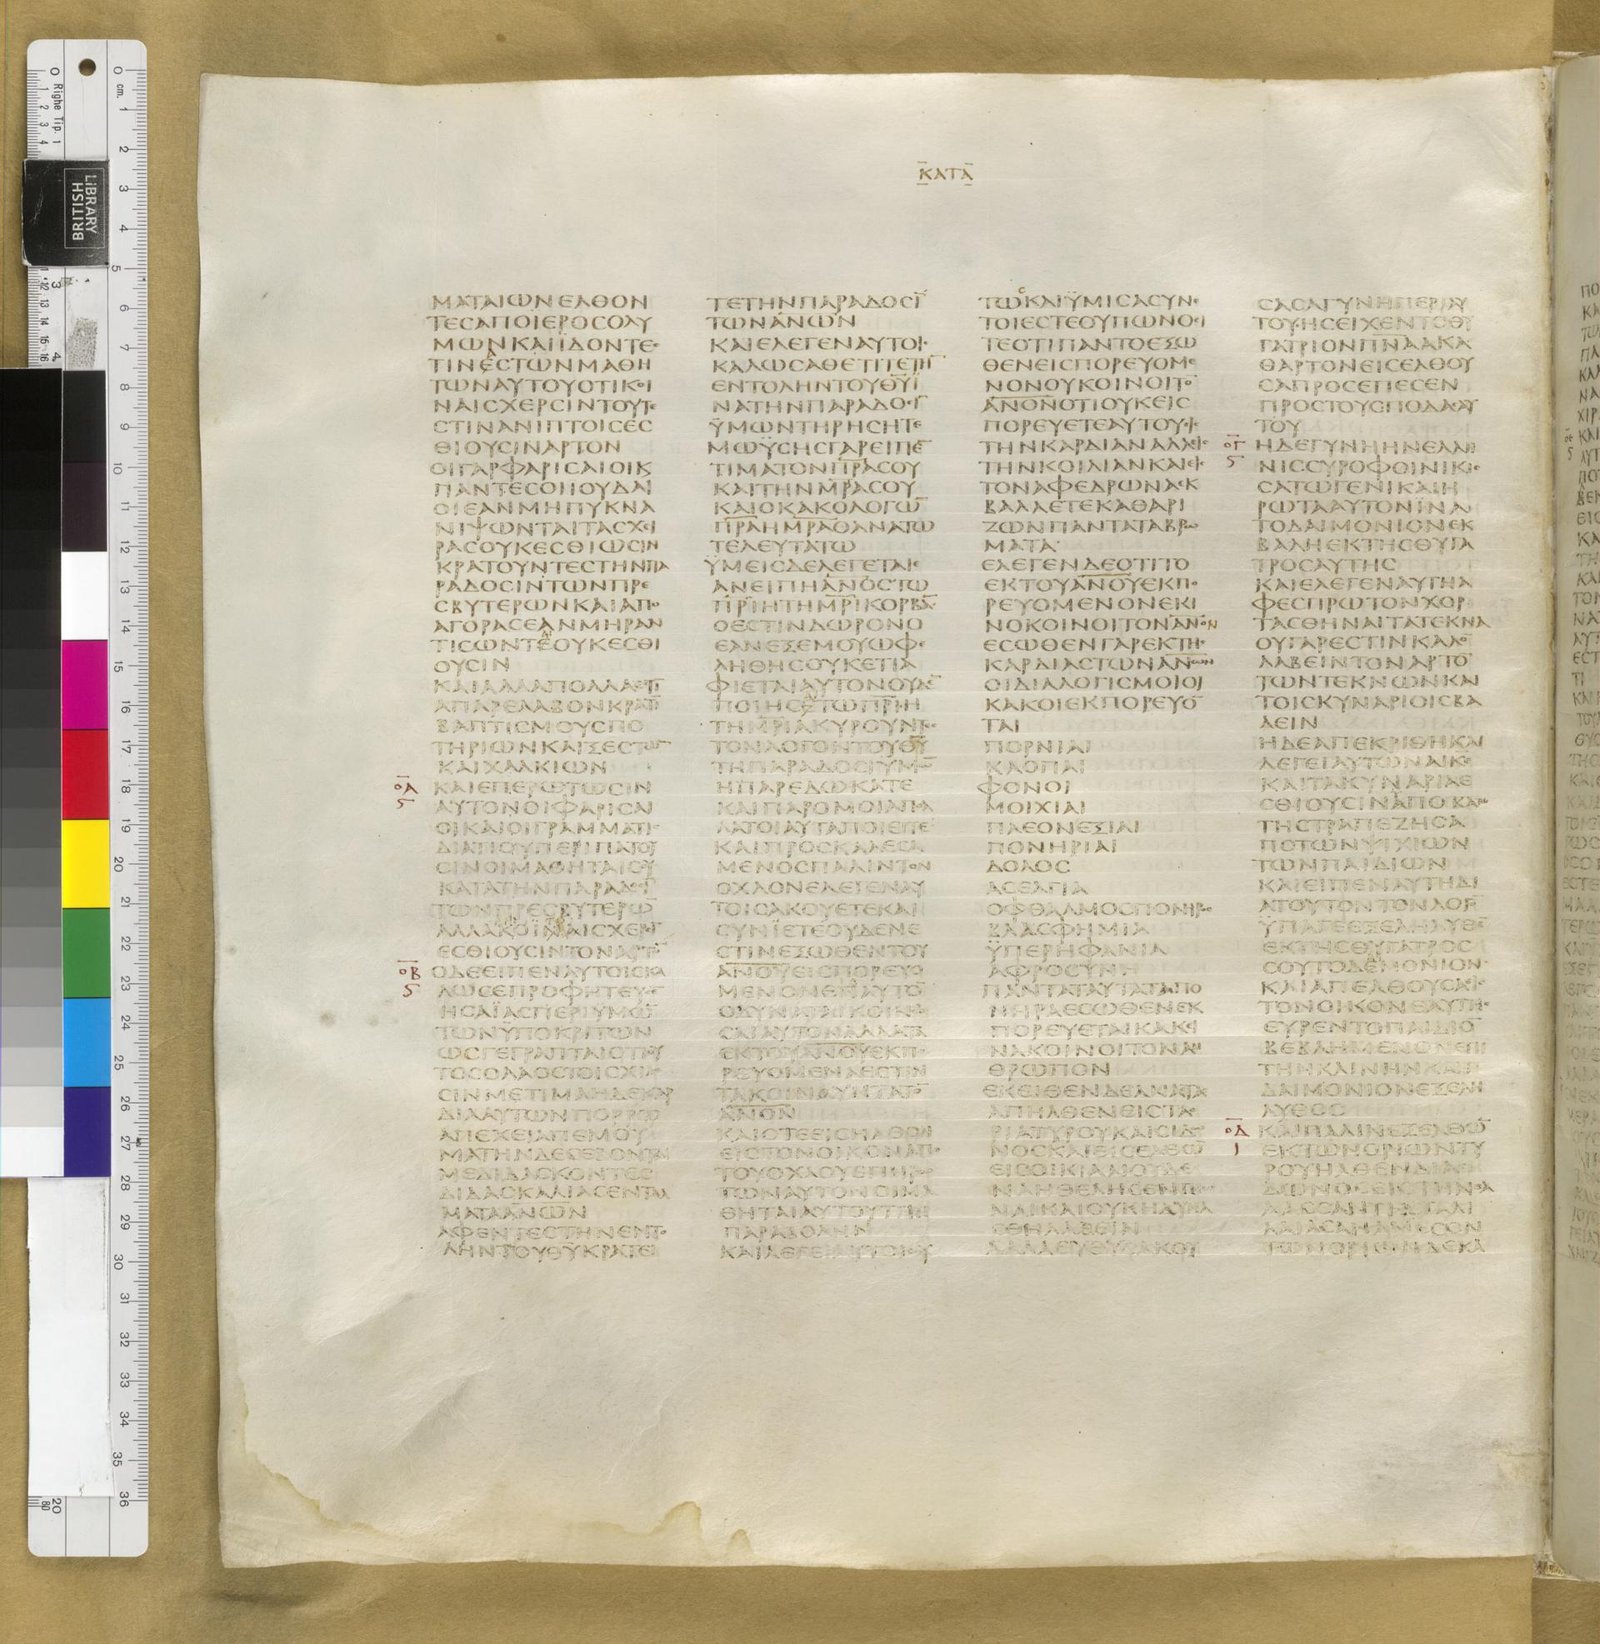 ΚΑΤΑ
ΜΑΤΑΙΩΝΕΛΘΟΝ
ΤΕCΑΠΟΙΕΡΟCΟΛΥ
ΜΩΝΚΑΙΪΔΟΝΤΕ
ΤΙΝΕCΤΩΝΜΑΘΗ
ΤΩΝΑΥΤΟΥΟΤΙΚΟΙ
ΝΑΙCΧΕΡCΙΝΤΟΥΤΕ
CΤΙΝΑΝΙΠΤΟΙCΕC
ΘΙΟΥCΙΝΑΡΤΟΝ
ΟΙΓΑΡΦΑΡΙCΑΙΟΙΚ
ΠΑΝΤΕCΟΙΙΟΥΔΑΙ
ΟΙΕΑΝΜΗΠΥΚΝΑ
ΝΙΨΩΝΤΑΙΤΑCΧΕΙ
ΡΑCΟΥΚΕCΘΙΩCΙΝ
ΚΡΑΤΟΥΝΤΕCΤΗΝΠΑ
ΡΑΔΟCΙΝΤΩΝΠΡΕ
CΒΥΤΕΡΩΝΚΑΙΑΠΟ
ΑΓΟΡΑCΕΑΝΜΗΡΑΝ
ΤΙCΩΝΤΕΟΥΚΕCΘΙ
ΟΥCΙΝ
ΚΑΙΑΛΛΑΠΟΛΛΑΕΤΙ
ΑΠΑΡΕΛΑΒΟΝΚΡΑΤΙ
ΒΑΠΤΙCΜΟΥCΠΟ
ΤΗΡΙΩΝΚΑΙΞΕCΤΩ̅
ΚΑΙΧΑΛΚΙΩΝ
ΟΑ ΚΑΙΕΠΕΡΩΤΩCΙΝ
ΑΥΤΟΝΟΙΦΑΡΙCΑΙ
ΟΙΚΑΙΟΙΓΡΑΜΜΑΤΙ
ΔΙΑΤΙΟΥΠΕΡΙΠΑΤΟΥ
CΙΝΟΙΜΑΘΗΤΑΙCΟΥ
ΚΑΤΑΤΗΝΠΑΡΑΔΟCΙ̅
ΤΩΝΠΡΕCΒΥΤΕΡΩ̅
ΑΛΛΑΚΟΙΝΑΙCΧΕΡCΙ̅
ΕCΘΙΟΥCΙΝΤΟΝΑΡΤΟ̅
ΟΒ ΟΔΕΕΙΠΕΝΑΥΤΟΙCΚΑ
ΛΩCΕΠΡΟΦΗΤΕΥCΕ̅
ΗCΑΪΑCΠΕΡΙΥΜΩ̅
ΤΩΝΥΠΟΚΡΙΤΩΝ
ΩCΓΕΓΡΑΠΤΑΙΟΤΙΟΥ
ΤΟCΟΛΑΟCΤΟΙCΧΙΛΕ
CΙΝΜΕΤΙΜΑΗΔΕΚΑΡ
ΔΙΑΑΥΤΩΝΠΟΡΡΩ
ΑΠΕΧΕΙΑΠΕΜΟΥ
ΜΑΤΗΝΔΕCΕΒΟΝΤΑΙ
ΜΕΔΙΔΑCΚΟΝΤΕC
ΔΙΔΑCΚΑΛΙΑCΕΝΤΑΛ
ΜΑΤΑΑΝΩΝ
ΑΦΕΝΤΕCΤΗΝΕΝΤΟ
ΛΗΝΤΟΥΘΥΚΡΑΤΕΙ
ΤΕΤΗΝΠΑΡΑΔΟCΙ̅
ΤΩΝΑΝΩΝ
ΚΑΙΕΛΕΓΕΝΑΥΤΟΙC
ΚΑΛΩCΑΘΕΤΙΤΕΤΗ̅
ΕΝΤΟΛΗΝΤΟΥΘΥΪ
ΝΑΤΗΝΠΑΡΑΔΟCΙ̅
ΫΜΩΝΤΗΡΗCΗΤΕ
ΜΩΫCΗCΓΑΡΕΙΠΕ̅
ΤΙΜΑΤΟΝΠΡΑCΟΥ
ΚΑΙΤΗΝΜΡΑCΟΥ
ΚΑΙΟΚΑΚΟΛΟΓΩ̅
ΠΡΑΗΜΡΑΘΑΝΑΤΩ
ΤΕΛΕΥΤΑΤΩ
ΥΜΕΙCΔΕΛΕΓΕΤΑΙ
ΑΝΕΙΠΗΑΝΟCΤΩ
ΠΡΙΗΤΗΜΡΙΚΟΡΒΑ̅
ΟΕCΤΙΝΔΩΡΟΝΟ
ΕΑΝΕΞΕΜΟΥΩΦΕ
ΛΗΘΗCΟΥΚΕΤΙΑ
ΦΙΕΤΑΙΑΥΤΟΝΟΥΔΕ̅
ΠΟΙΗCΕΤΩΠΡΙΗ
ΤΗΜΡΙΑΚΥΡΟΥΝΤΕC
ΤΟΝΛΟΓΟΝΤΟΥΘΥ
ΤΗΠΑΡΑΔΟCΙΥΜΩ̅
ΗΠΑΡΕΔΩΚΑΤΕ
ΚΑΙΠΑΡΟΜΟΙΑΠΑ
ΛΑΤΟΙΑΥΤΑΠΟΙΕΙΤΕ
ΚΑΙΠΡΟCΚΑΛΕCΑ
ΜΕΝΟCΠΑΛΙΝΤΟΝ
ΟΧΛΟΝΕΛΕΓΕΝΑΥ
ΤΟΙCΑΚΟΥΕΤΕΚΑΙ
CΥΝΪΕΤΕΟΥΔΕΝΕ
CΤΙΝΕΞΩΘΕΝΤΟΥ
ΑΝΟΥΕΙCΠΟΡΕΥΟ
ΜΕΝΟΝΕΙCΑΥΤΟ̅
ΟΔΥΝΑΤΑΙΚΟΙΝΩ
CΑΙΑΥΤΟΝΑΛΛΑΤΑ
ΕΚΤΟΥΑΝΟΥΕΚΠΟ
ΡΕΥΟΜΕΝΑΕCΤΙΝ
ΤΑΚΟΙΝΟΥΝΤΑΤΟ̅
ΑΝΟΝ
ΚΑΙΟΤΕΕΙCΗΛΘΟΝ
ΕΙCΤΟΝΟΙΚΟΝΑΠΟ
ΤΟΥΟΧΛΟΥΕΠΗΡΩ
ΤΩΝΑΥΤΟΝΟΙΜΑ
ΘΗΤΑΙΑΥΤΟΥΤΗΝ
ΠΑΡΑΒΟΛΗΝ
ΚΑΙΛΕΓΕΙΑΥΤΟΙCΟΥ
ΤΩΚΑΙΫΜΙCΑCΥΝΕ
ΤΟΙΕCΤΕΟΥΠΩΝΟΕΙ
ΤΕΟΤΙΠΑΝΤΟΕΞΩ
ΘΕΝΕΙCΠΟΡΕΥΟΜΕ
ΝΟΝΟΥΚΟΙΝΟΙΤΟ̅
ΑΝΟΝΟΤΙΟΥΚΕΙC
ΠΟΡΕΥΕΤΕΑΥΤΟΥΕΙC
ΤΗΝΚΑΡΔΙΑΝΑΛΛΕΙC
ΤΗΝΚΟΙΛΙΑΝΚΑΙΕΙC
ΤΟΝΑΦΕΔΡΩΝΑΕΚ
ΒΑΛΛΕΤΕΚΑΘΑΡΙ
ΖΩΝΠΑΝΤΑΤΑΒΡΩ
ΜΑΤΑ
ΕΛΕΓΕΝΔΕΟΤΙΤΟ
ΕΚΤΟΥΑΝΟΥΕΚΠΟ
ΡΕΥΟΜΕΝΟΝΕΚΙ
ΝΟΚΟΙΝΟΙΤΟΝΑΝΟΝ
ΕCΩΘΕΝΓΑΡΕΚΤΗC
ΚΑΡΔΙΑCΤΩΝΑΝΩΝ
ΟΙΔΙΑΛΟΓΙCΜΟΙΟΙ
ΚΑΚΟΙΕΚΠΟΡΕΥΟ̅
ΤΑΙ
ΠΟΡΝΙΑΙ
ΚΛΟΠΑΙ
ΦΟΝΟΙ
ΜΟΙΧΙΑΙ
ΠΛΕΟΝΕΞΙΑΙ
ΠΟΝΗΡΙΑΙ
ΔΟΛΟC
ΑCΕΛΓΙΑ
ΟΦΘΑΛΜΟCΠΟΝΗΡΟC
ΒΛΑCΦΗΜΙΑ
ΫΠΕΡΗΦΑΝΙΑ
ΑΦΡΟCΥΝΗ
ΠΑΝΤΑΤΑΥΤΑΤΑΠΟ
ΝΗΡΑΕCΩΘΕΝΕΚ
ΠΟΡΕΥΕΤΑΙΚΑΚΕΙ
ΝΑΚΟΙΝΟΙΤΟΝΑ̅
ΘΡΩΠΟΝ
ΕΚΕΙΘΕΝΔΕΑΝΑCΤΑC
ΑΠΗΛΘΕΝΕΙCΤΑΟ
ΡΙΑΤΥΡΟΥΚΑΙCΙΔΩ
ΝΟCΚΑΙΕΙCΕΛΘΩ̅
ΕΙCΟΙΚΙΑΝΟΥΔΕ
ΝΑΗΘΕΛΗCΕΝΓΝΩ
ΝΑΙΚΑΙΟΥΚΗΔΥΝΑ
CΘΗΛΑΘΕΙΝ
ΑΛΛΑΕΥΘΥCΑΚΟΥ
CΑCΑΓΥΝΗΠΕΡΙΑΥ
ΤΟΥΗCΕΙΧΕΝΤΟΘΥ
ΓΑΤΡΙΟΝΠΝΑΑΚΑ
ΘΑΡΤΟΝΕΙCΕΛΘΟΥ
CΑΠΡΟCΕΠΕCΕΝ
ΠΡΟCΤΟΥCΠΟΔΑCΑΥ
ΤΟΥ
ΟΓ ΗΔΕΓΥΝΗΗΝΕΛΛΗ
ΝΙCCΥΡΟΦΟΙΝΙΚΙC
CΑΤΩΓΕΝΙΚΑΙΗ
ΡΩΤΑΑΥΤΟΝΙΝΑ
ΤΟΔΑΙΜΟΝΙΟΝΕΚ
ΒΑΛΗΕΚΤΗCΘΥΓΑ
ΤΡΟCΑΥΤΗC
ΚΑΙΕΛΕΓΕΝΑΥΤΗΑ
ΦΕCΠΡΩΤΟΝΧΟΡ
ΤΑCΘΗΝΑΙΤΑΤΕΚΝΑ
ΟΥΓΑΡΕCΤΙΝΚΑΛΟ̅
ΛΑΒΕΙΝΤΟΝΑΡΤΟ̅
ΤΩΝΤΕΚΝΩΝΚΑΙ
ΤΟΙCΚΥΝΑΡΙΟΙCΒΑ
ΛΕΙΝ
ΗΔΕΑΠΕΚΡΙΘΗΚΑΙ
ΛΕΓΕΙΑΥΤΩΝΑΙΚΕ
ΚΑΙΤΑΚΥΝΑΡΙΑΕ
CΘΙΟΥCΙΝΑΠΟΚΑΤΩ
ΤΗCΤΡΑΠΕΖΗCΑ
ΠΟΤΩΝΨΙΧΙΩΝ
ΤΩΝΠΑΙΔΙΩΝ
ΚΑΙΕΙΠΕΝΑΥΤΗΔΙ
ΑΤΟΥΤΟΝΤΟΝΛΟΓΟ̅
ΫΠΑΓΕΕΞΕΛΗΛΥΘΕ̅
ΕΚΤΗCΘΥΓΑΤΡΟC
CΟΥΤΟΔΕΜΟΝΙΟΝ
ΚΑΙΑΠΕΛΘΟΥCΑΕΙC
ΤΟΝΟΙΚΟΝΕΑΥΤΗC
ΕΥΡΕΝΤΟΠΑΙΔΙΟ̅
ΒΕΒΛΗΜΕΝΟΝΕΠΙ
ΤΗΝΚΛΙΝΗΝΚΑΙΤΟ
ΔΑΙΜΟΝΙΟΝΕΞΕΛΗ
ΛΥΘΟC
ΟΔ ΚΑΙΠΑΛΙΝΕΞΕΛΘΩ̅
Ι ΕΚΤΩΝΟΡΙΩΝΤΥ
ΡΟΥΗΛΘΕΝΔΙΑCΙ
ΔΩΝΟCΕΙCΤΗΝΘΑ
ΛΑCCΑΝΤΗCΓΑΛΙ
ΛΑΙΑCΑΝΑΜΕCΟΝ
ΤΩΝΟΡΙΩΝΔΕΚΑ
BRITISH LIBRARY